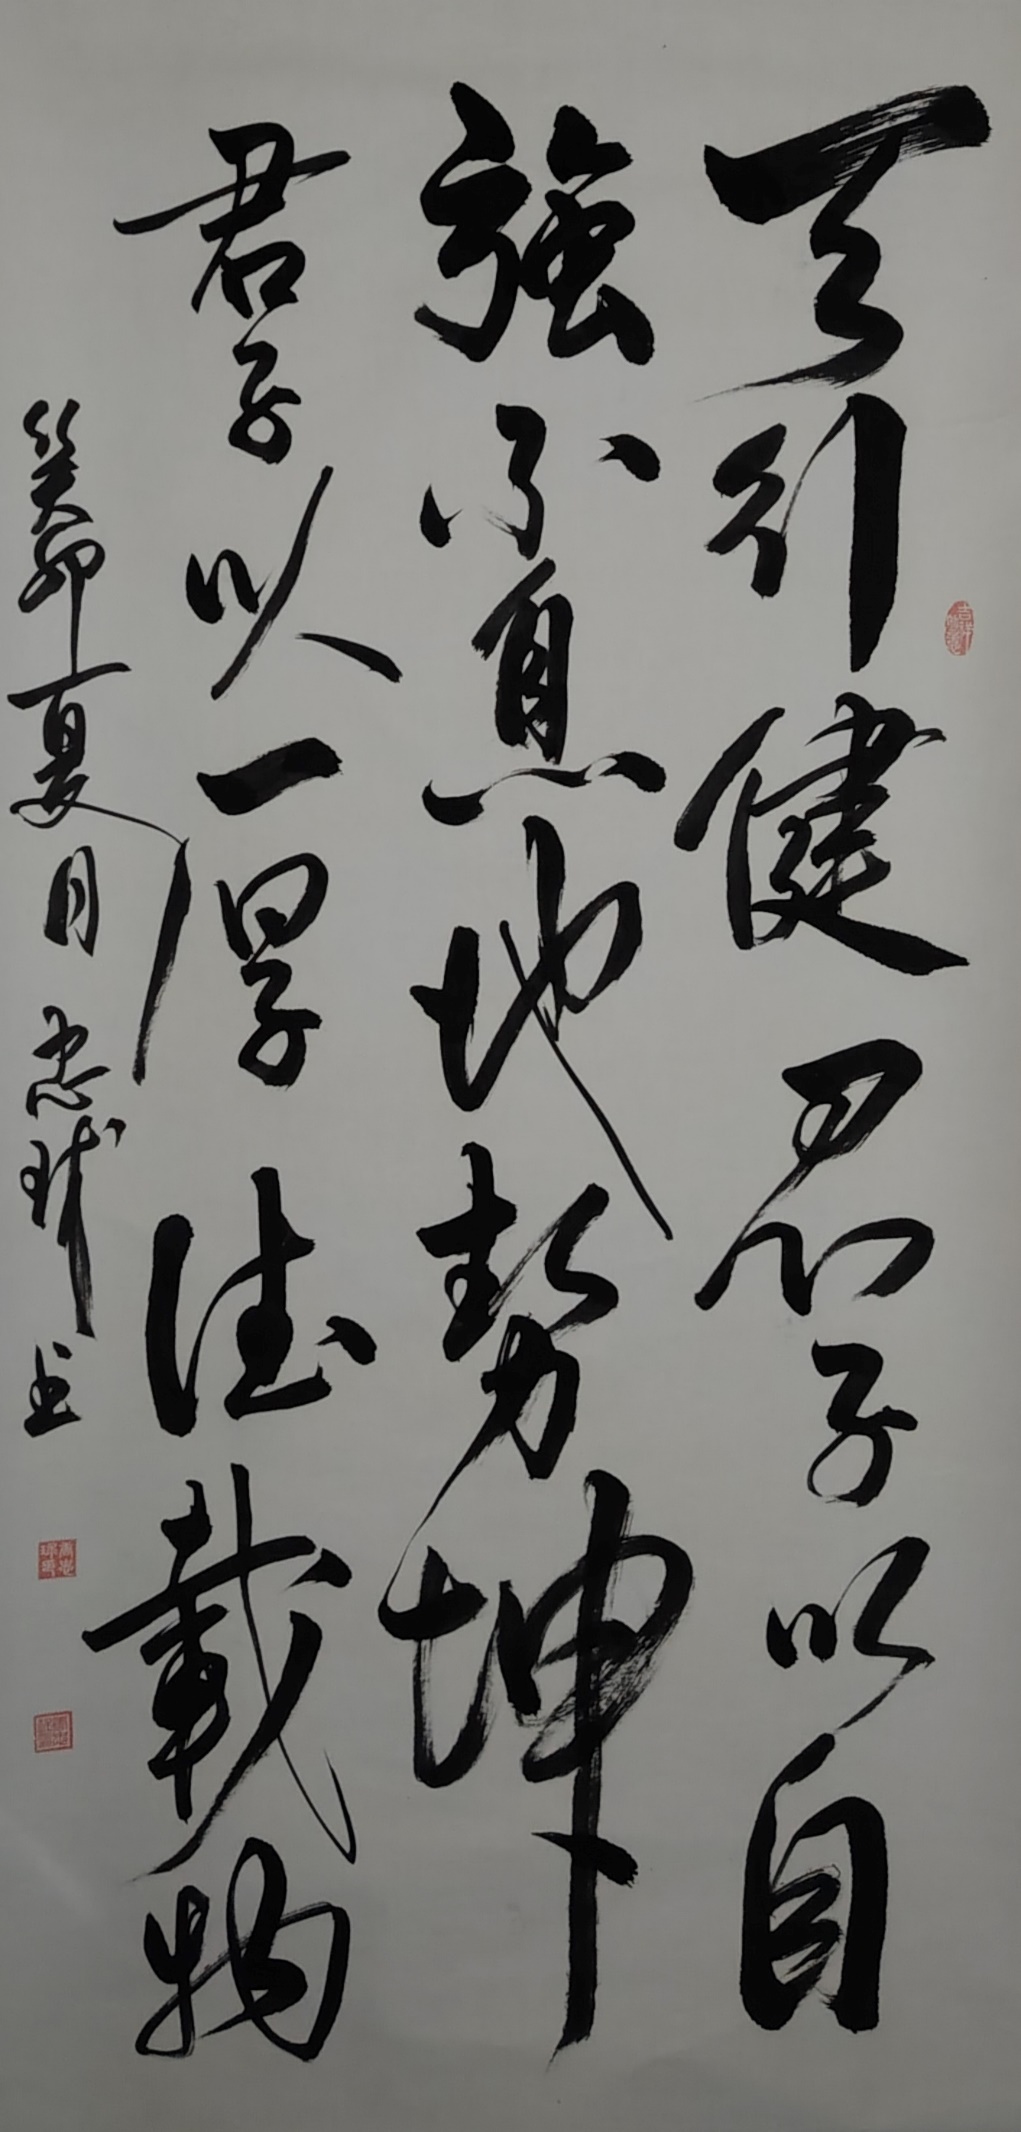 天行健君子以自
强不息地势坤
君子以厚德载物
癸卯夏月忠球书